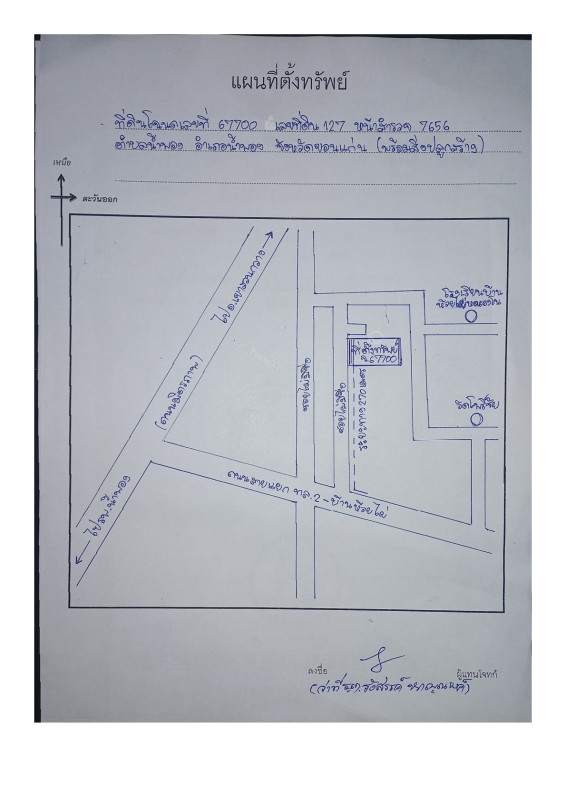 แผนที่ตั้งทรัพย์
ที่ดินโฉนดเลขที่ 67700 เลขที่ดิน 127 หน้าสำรวจ 7656
ตำบลน้ำพอง อำเภอน้ำพอง จังหวัดขอนแก่น (พร้อมสิ่งปลูกสร้าง)
เหนือ
ตะวันออก
ไปอ.เขาสวนกวาง
(ถนนมิตรภาพ)
ไปรพ.น้ำพอง
ซอยไม่มีชื่อ
ซอยไม่มีชื่อ
ระยะทาง 270 เมตร
ที่ตั้งทรัพย์
ฉ.67700
โรงเรียนบ้าน
วัดโพธิ์ชัย
ถนนสายแยก ทล.2 - บ้านห้วยไผ่
ลงชื่อ
ผู้แทนโจทก์
(ว่าที่ ร.ต.